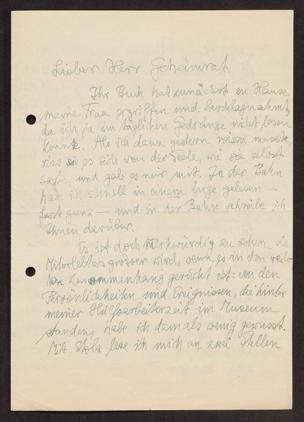 Lieber Herr Geheimrat.
Ihr Buch hat zunächst zu Hause
meine Frau ergriffen und beschlagnahmt,
da ich ja im täglichen Gedränge nicht lesen
konnte. Als ich dann gestern reisen musste
riss sie es sich von der Seele, wie sie selbst
sagte, und gab es mir mit. In der Bahn
habe ich schnell in einem Zuge gelesen –
fast ganz – und in der Bahn schreibe ich
Ihnen darüber.
Es ist doch merkwürdig zu sehen, wie
Miterlebtes grösser wird, wenn es in den
Zusammenhang gerückt ist: von den
Persönlichkeiten und Ereignissen, die hinter
meiner Hülfsarbeiterzeit im Museum
standen, habe ich damals wenig gewusst.
Mit Stolz lese ich mich an zwei Stellen